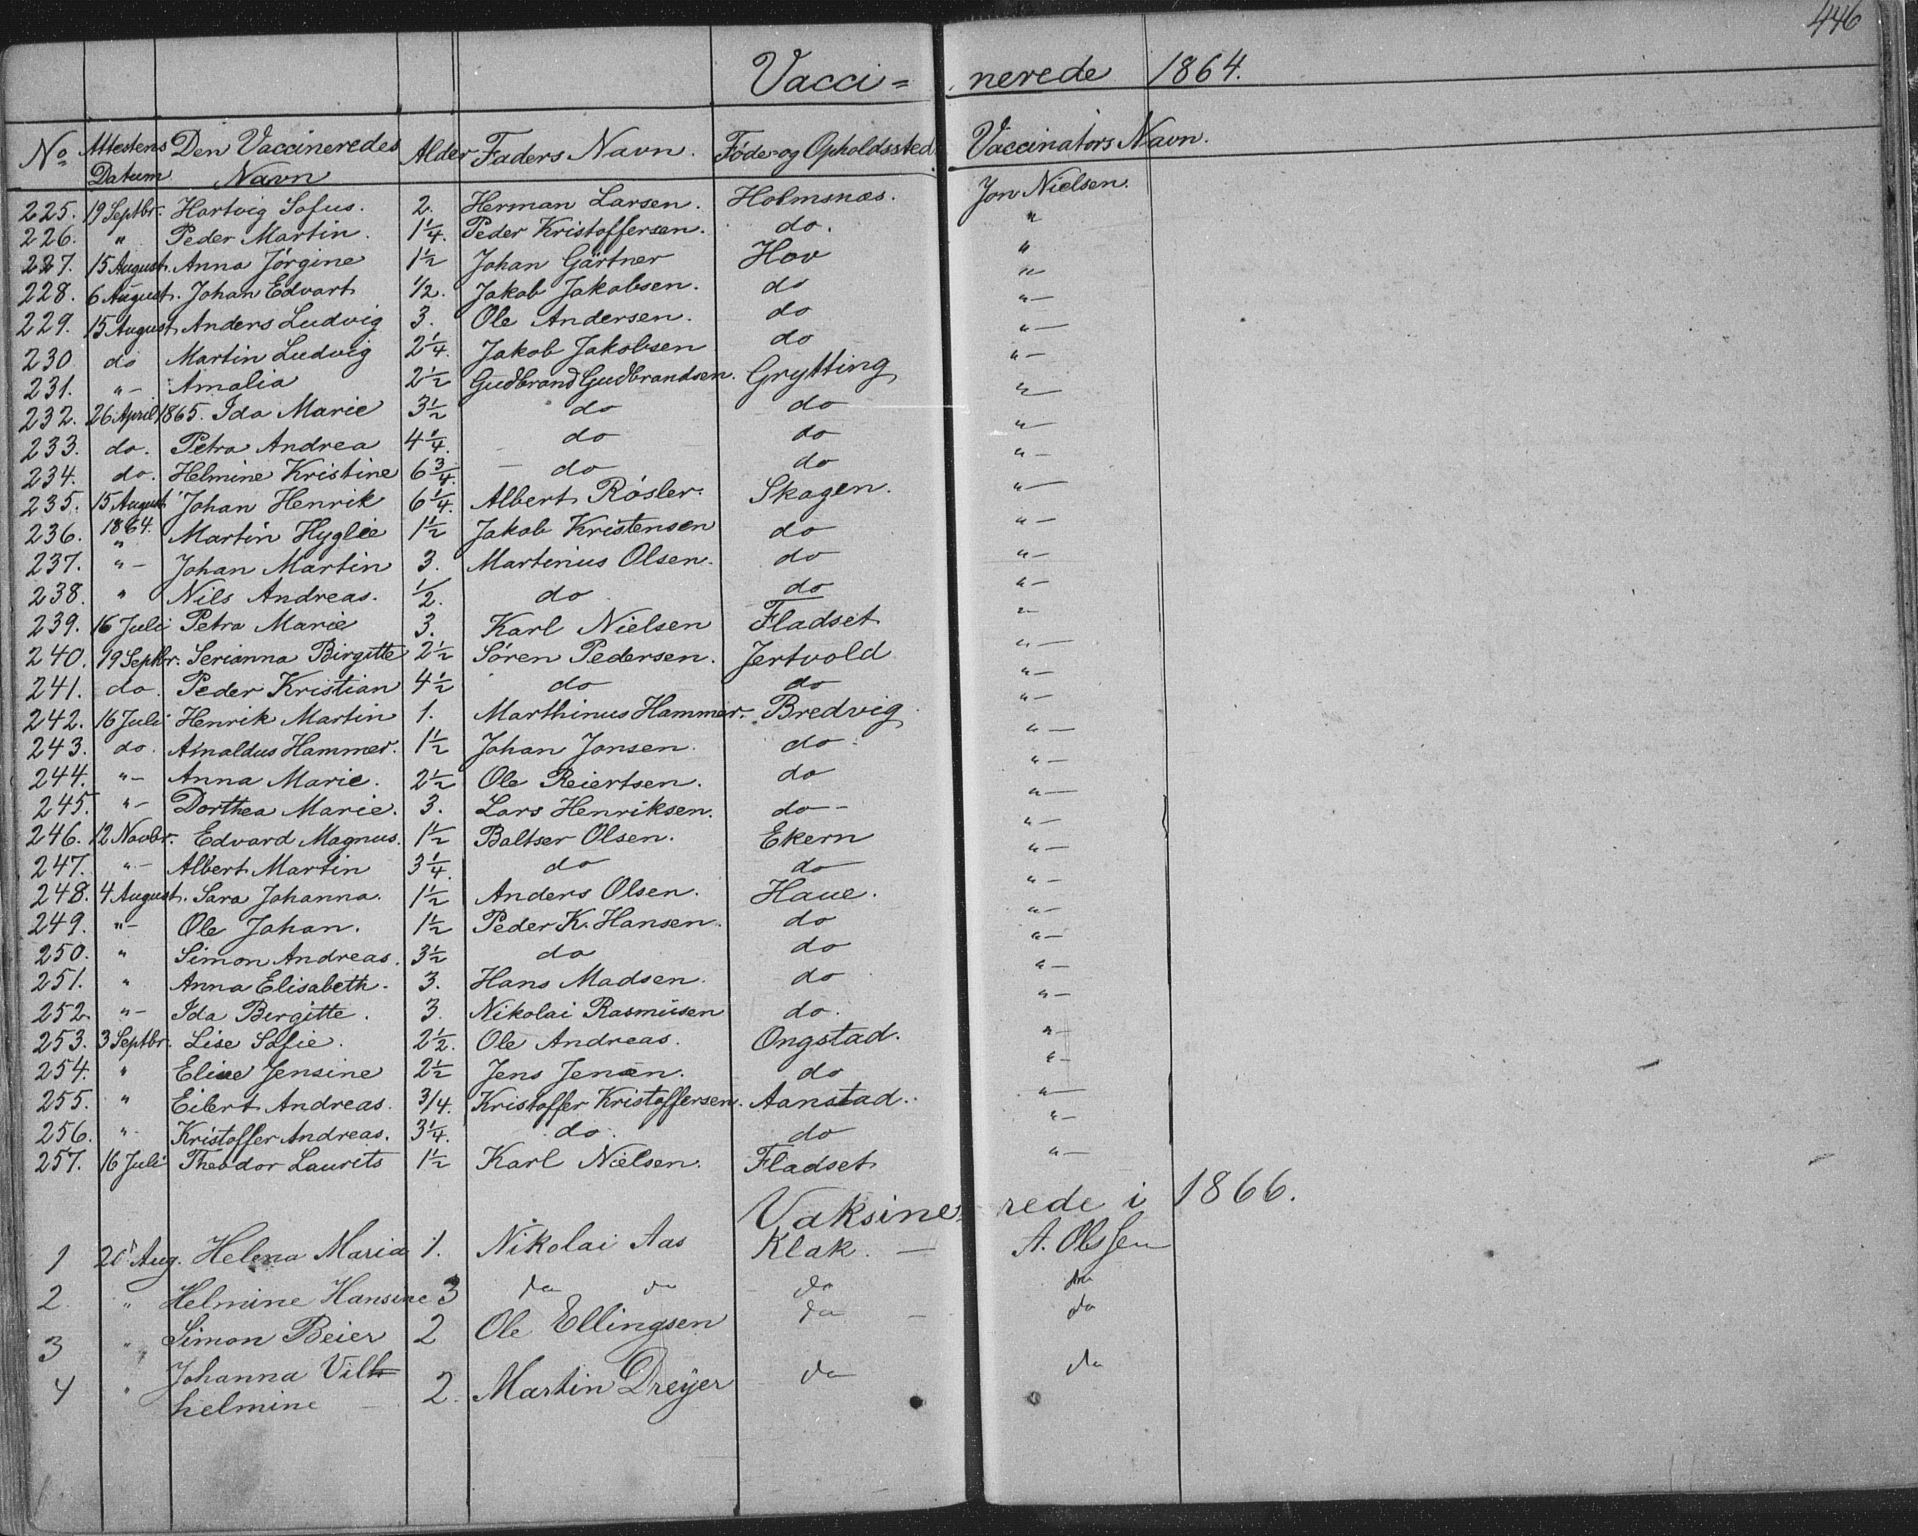 446
Vacci= nerede 1864.
No Attestens Datum Den Vaccineredes Navn Alder Faders Navn. Føde- og Opholdssted Vaccinators Navn.
225. 19 Septbr. Hartvig Sofus. 2. Herman Larsen. Holmsnæs. Jon Nielsen.
226. " Peder Martin. 1 1/4. Peder Kristoffersen. do. "
227. 15 August. Anna Jørgine 1 1/2 Johan Gärtner Hov "
228. 6 August. Johan Edvart 1/2. Jakob Jakobsen. do "
229. 15 August. Anders Ludvig 3. Ole Andersen. do "
230 do Martin Ludvig 2 1/4. Jakob Jakobsen do "
231. " Amalia 2 1/2 Gudbrand Gudbrandsen. Grytting "
232. 26 April 1865. Ida Marie 3 1/2 do do "
233. do. Petra Andrea 4 1/4. do do "
234. do. Helmine Kristine 6 3/4. do do "
235. 15 August 1864. Johan Henrik 6 1/4. Albert Røsler. Skagen. "
236. " Martin Hyglie 1 1/2 Jakob Kristensen do "
237. " Johan Martin 3. Martinus Olsen. do "
238. " Nils Andreas. 1/2. do do "
239. 16 Juli Petra Marie 3. Karl Nielsen Fladset "
240. 19 Septbr. Serianna Birgitte 2 1/2 Søren Pedersen. Jertvold "
241. do. Peder Kristian 4 1/2 do do "
242. 16 Juli Henrik Martin 1. Marthinus Hammer. Bredvig "
243. do. Arnoldus Hammer. 1 1/2 Johan Jonsen. do "
244. " Anna Marie. 2 1/2 Ole Reiertsen. do "
245. " Dorthea Marie. 3. Lars Henriksen. do "
246. 12 Novbr. Edvard Magnus. 1 1/2 Baltser Olsen. Ekern "
247. " Albert Martin 3 1/4. do do "
248. 4 August. Sara Johanna. 1 1/2 Anders Olsen. Haue. "
249. " Ole Johan. 1 1/2 Peder K. Hansen. do "
250. " Simon Andreas. 3 1/2 do do "
251. " Anna Elisabeth. 3. Hans Madsen. do "
252. " Ida Birgitte. 3. Nikolai Rasmusen do. "
253. 3 Septbr. Lise Sofie. 2 1/2. Ole Andreas. Ongstad. "
254. " Elise Jensine 2 1/2 Jens Jensen. do "
255. " Eilert Andreas. 3/4. Kristoffer Kristoffersen. Aanstad. "
256. " Kristoffer Andreas. 3 1/4. do. do "
257. 16 Juli Theodor Laurits 1 1/2 Karl Nielsen. Fladset "
Vaksine= rede i 1866.
1 20 Aug. Helena Maria 1. Nikolai Aas Klak. A. Olssen
2 " Helmine Hansine 3 do do do do
3 " Simon Beier 2 Ole Ellingsen do do
4 " Johanna Vil 2. Martin Dreyer do do
helmine